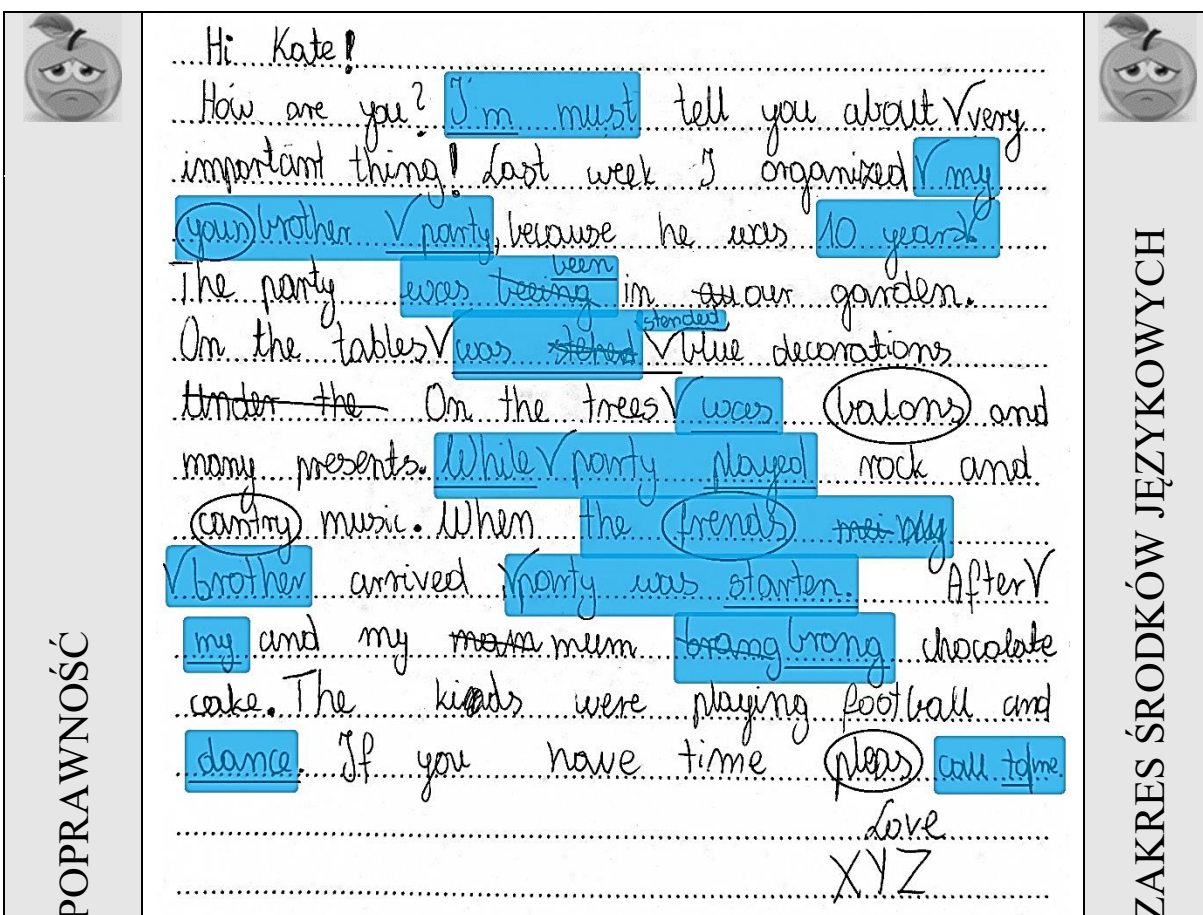 Hi Kate!
How are you? I'm must tell you about V very
important thing! Last week I organized V my
youn brother V party, because he was 10 years V
been
The party was beeing in our garden.
stended
On the tables V was V blue decorations
Under the On the trees V was balons and
many presents. While V party played rock and
cantry music. When the frends my
V brother arrived V party was starten. After V
my and my mam mum brang brong chocolate
cake. The kids were playing football and
dance. If you have time pleas call to me.
Love
XYZ
POPRAWNOŚĆ
ZAKRES ŚRODKÓW JĘZYKOWYCH